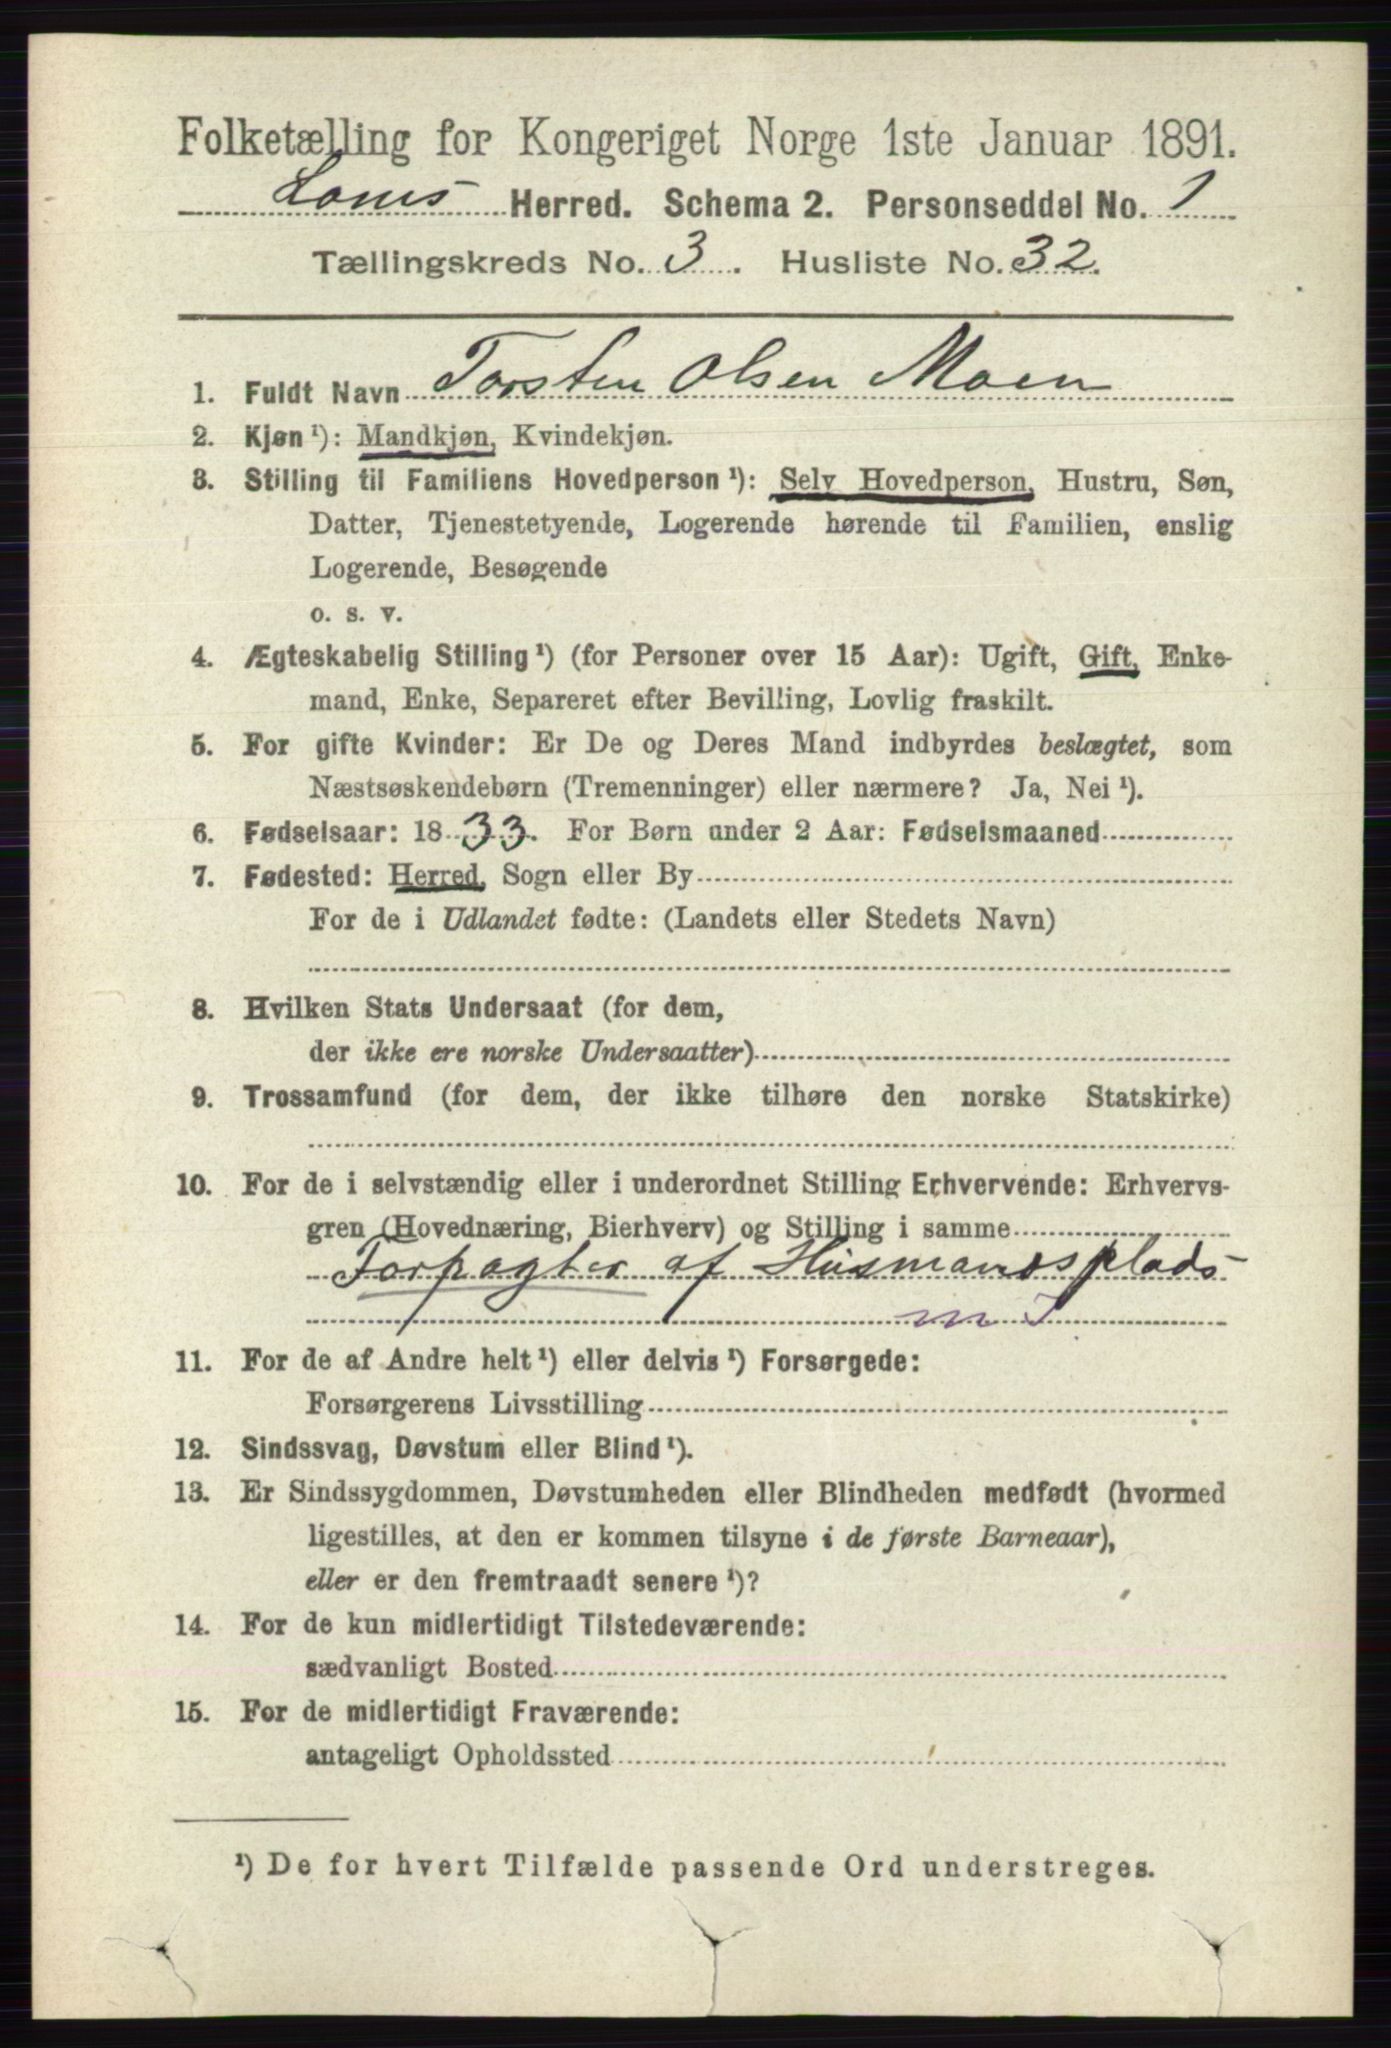 Folketælling for Kongeriget Norge 1ste Januar 1891.
Loms Herred. Schema 2. Personseddel No. 1
Tællingskreds No. 3. Husliste No. 32.
1. Fuldt Navn Torsten Olsen Moen
2. Kjøn ¹): Mandkjøn, Kvindekjøn.
3. Stilling til Familiens Hovedperson ¹): Selv Hovedperson, Hustru, Søn,
Datter, Tjenestetyende, Logerende hørende til Familien, enslig
Logerende, Besøgende
o. s. v.
4. Ægteskabelig Stilling ¹) (for Personer over 15 Aar): Ugift, Gift, Enke-
mand, Enke, Separeret efter Bevilling, Lovlig fraskilt.
5. For gifte Kvinder: Er De og Deres Mand indbyrdes beslægtet, som
Næstsøskendebørn (Tremenninger) eller nærmere? Ja, Nei ¹).
6. Fødselsaar: 1833. For Børn under 2 Aar: Fødselsmaaned
7. Fødested: Herred, Sogn eller By
For de i Udlandet fødte: (Landets eller Stedets Navn)
8. Hvilken Stats Undersaat (for dem,
der ikke ere norske Undersaatter)
9. Trossamfund (for dem, der ikke tilhøre den norske Statskirke)
10. For de i selvstændig eller i underordnet Stilling Erhvervende: Erhvervs-
gren (Hovednæring, Bierhverv) og Stilling i samme
Forpagter af Husmandsplads
m J
11. For de af Andre helt ¹) eller delvis ¹) Forsørgede:
Forsørgerens Livsstilling
12. Sindssvag, Døvstum eller Blind ¹).
13. Er Sindssygdommen, Døvstumheden eller Blindheden medfødt (hvormed
ligestilles, at den er kommen tilsyne i de første Barneaar),
eller er den fremtraadt senere ¹)?
14. For de kun midlertidigt Tilstedeværende:
sædvanligt Bosted
15. For de midlertidigt Fraværende:
antageligt Opholdssted
¹) De for hvert Tilfælde passende Ord understreges.